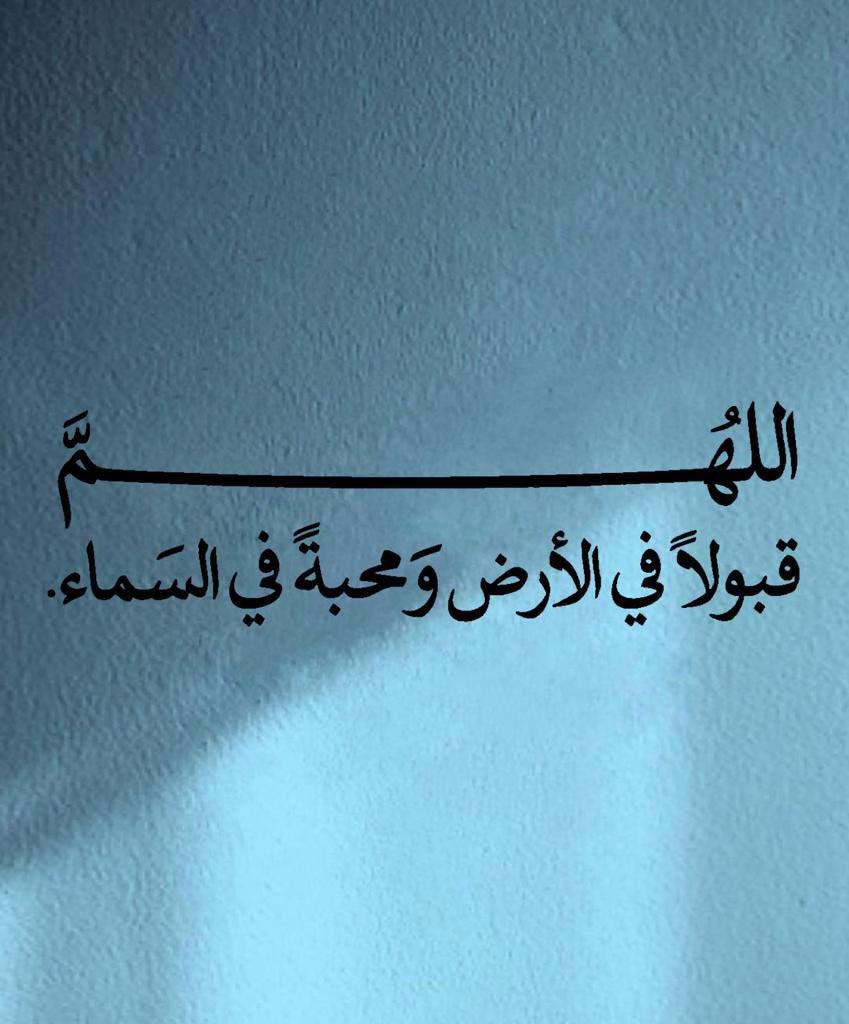 اللهُـــــــــــــمَّ
قبولاً في الأرض وَمحبةً في السَماء.